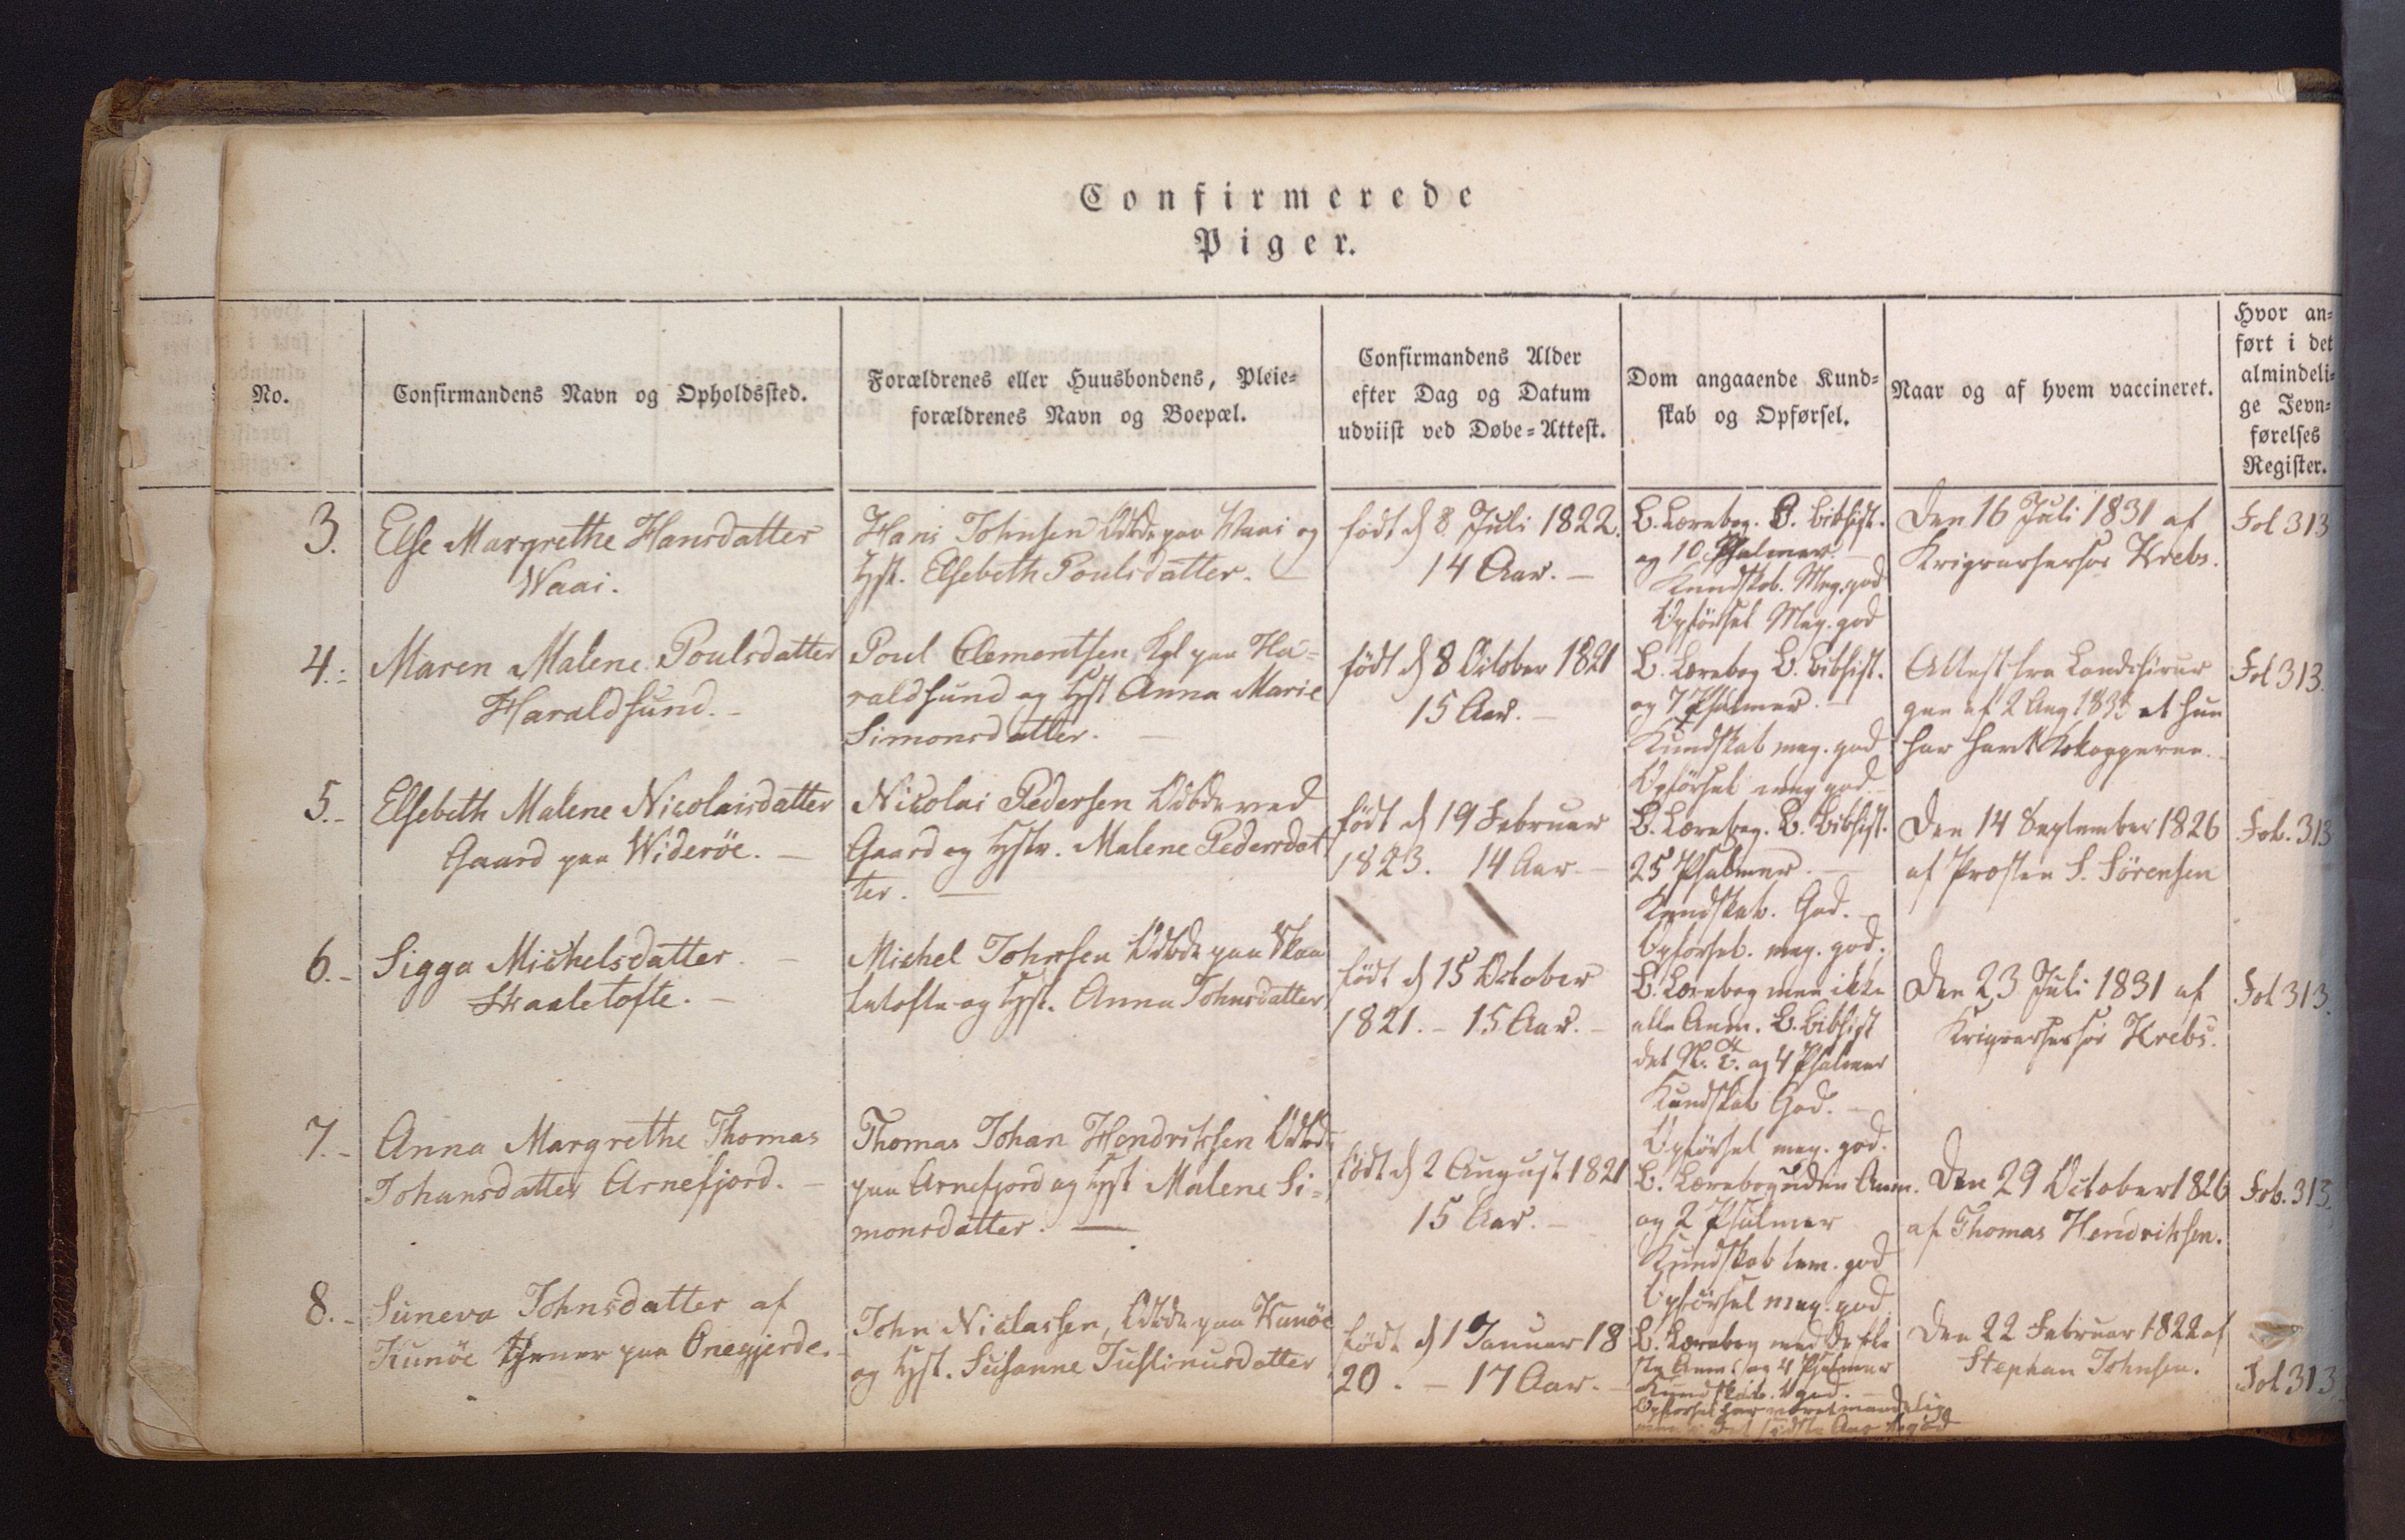 Confirmerede
Piger.
No.
Confirmandens Navn og Opholdssted.
Forældrenes eller Huusbondens, Pleie=
forældrenes Navn og Boepæl.
Confirmandens Alder
efter Dag og Datum
udviist ved Døbe=Attest.
Dom angaaende Kund=
skab og Opførsel.
Naar og af hvem vaccineret.
Hvor an=
ført i det
almindeli=
ge Jevn=
førelses
Register.
3.
Else Margrethe Hansdatter
Waai.
Hans Johnsen Odbde paa Waai og
Hst. Elsebeth Poulsdatter.
født d 8 Juli 1822.
14 Aar.
B. Lærebog. B. Bibhist.
og 10 Psalmer.
Kundskab. Meg. god
Opførsel Meg. god
Den 16 Juli 1831 af
Krebs.
Fol 313
4.
Maren Malene Poulsdatter
Haraldsund.
Poul Clementsen Kgl paa Ha=
raldsund og Hst Anna Marie
Simonsdatter.
født d 8 October 1821
15 Aar.
B. Lærebog B. Bibhist.
og 7 Psalmer.
Kundskab meg. god
Opførsel meg god.
Attest fra Landchirur
gen af 2 Aug at hun
har havt Kokopperne.
Fol 313.
5.
Elsebeth Malene Nicolaisdatter
Gaard paa Widerøe.
Nicolai Pedersen Odbde ved
Gaard og Hstr. Malene Pedersdat
ter.
født d 19 Februar
1823. 14 Aar.
B. Lærebog. B. Bibhist.
25 Psalmer.
Kundskab. God.
Opførsel. meg. god.
Den 14 September 1826
af Provsten S. Sørensen
Fol. 313
6.
Sigga Michelsdatter.
Skaaletofte.
Michel Johnsen Odbde paa Skaa
letofte og Hst. Anna Johnsdatter
født d 15 October
1821. - 15 Aar.
B. Lærebog men ikke
alle Anm. B. Bibhist
det N. T. og 4 Psalmer
Kundskab God.
Opførsel meg. god.
Den 23 Juli 1831 af
Krebs.
Fol 313.
7.
Anna Margrethe Thomas
Johansdatter Arnefjord.
Thomas Johan Hendriksen Odbde
paa Arnefjord og Hst Malene Si=
monsdatter.
født d 2 August 1821
15 Aar.
B. Lærebog uden Anm.
og 2 Psalmer
Kundskab tem. god
Opførsel meg. god.
Den 29 October 1826
af Thomas Hendriksen.
Fol. 313.
8.
Suneva Johnsdatter af
Kunøe tjener paa Onegjerde.
John Niclassen, Odbde paa Kunøe
og Hst. Susanne Justinusdatter
født d 1 Januar 18
20. - 17 Aar.
B. Lærebog med de fle
ste Anm. og 4 Psalmer
Kundskab. god.
Opførsel har været
det sidste Aar
Den 22 Februar 1822 af
Stephan Johnsen.
Fol 313